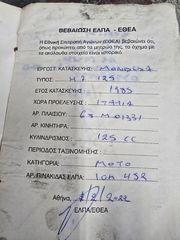 ΒΕΒΑΙΩΣΗ ΕΛΠΑ - ΕΘΕΑ
Η Εθνική Επιτροπή Αγώνων (ΕΘΕΑ) βεβαιώνει ότι,
όπως προκύπτει από τα μητρώα της, το όχημα με
τα ακόλουθα στοιχεία είναι ιστορικό.
ΕΡΓΟΣΤ. ΚΑΤΑΣΚΕΥΗΣ:
ΤΥΠΟΣ: 125
ΕΤΟΣ ΚΑΤΑΣΚΕΥΗΣ: 1985
ΧΩΡΑ ΠΡΟΕΛΕΥΣΗΣ: ΙΤΑΛΙΑ
ΑΡ. ΠΛΑΙΣΙΟΥ:
ΑΡ. ΚΙΝΗΤΗΡΑ:
ΚΥΛΙΝΔΡΙΣΜΟΣ: 125 CC
ΠΕΡΙΟΔΟΣ ΤΑΞΙΝΟΜΗΣΗΣ:
ΚΑΤΗΓΟΡΙΑ: ΜΟΤΟ
ΑΡ. ΠΙΝΑΚΙΔΑΣ ΕΛΠΑ: ΙΟΜ 452
Αθήνα, 2/2/2022
ΕΛΠΑ/ΕΘΕΑ